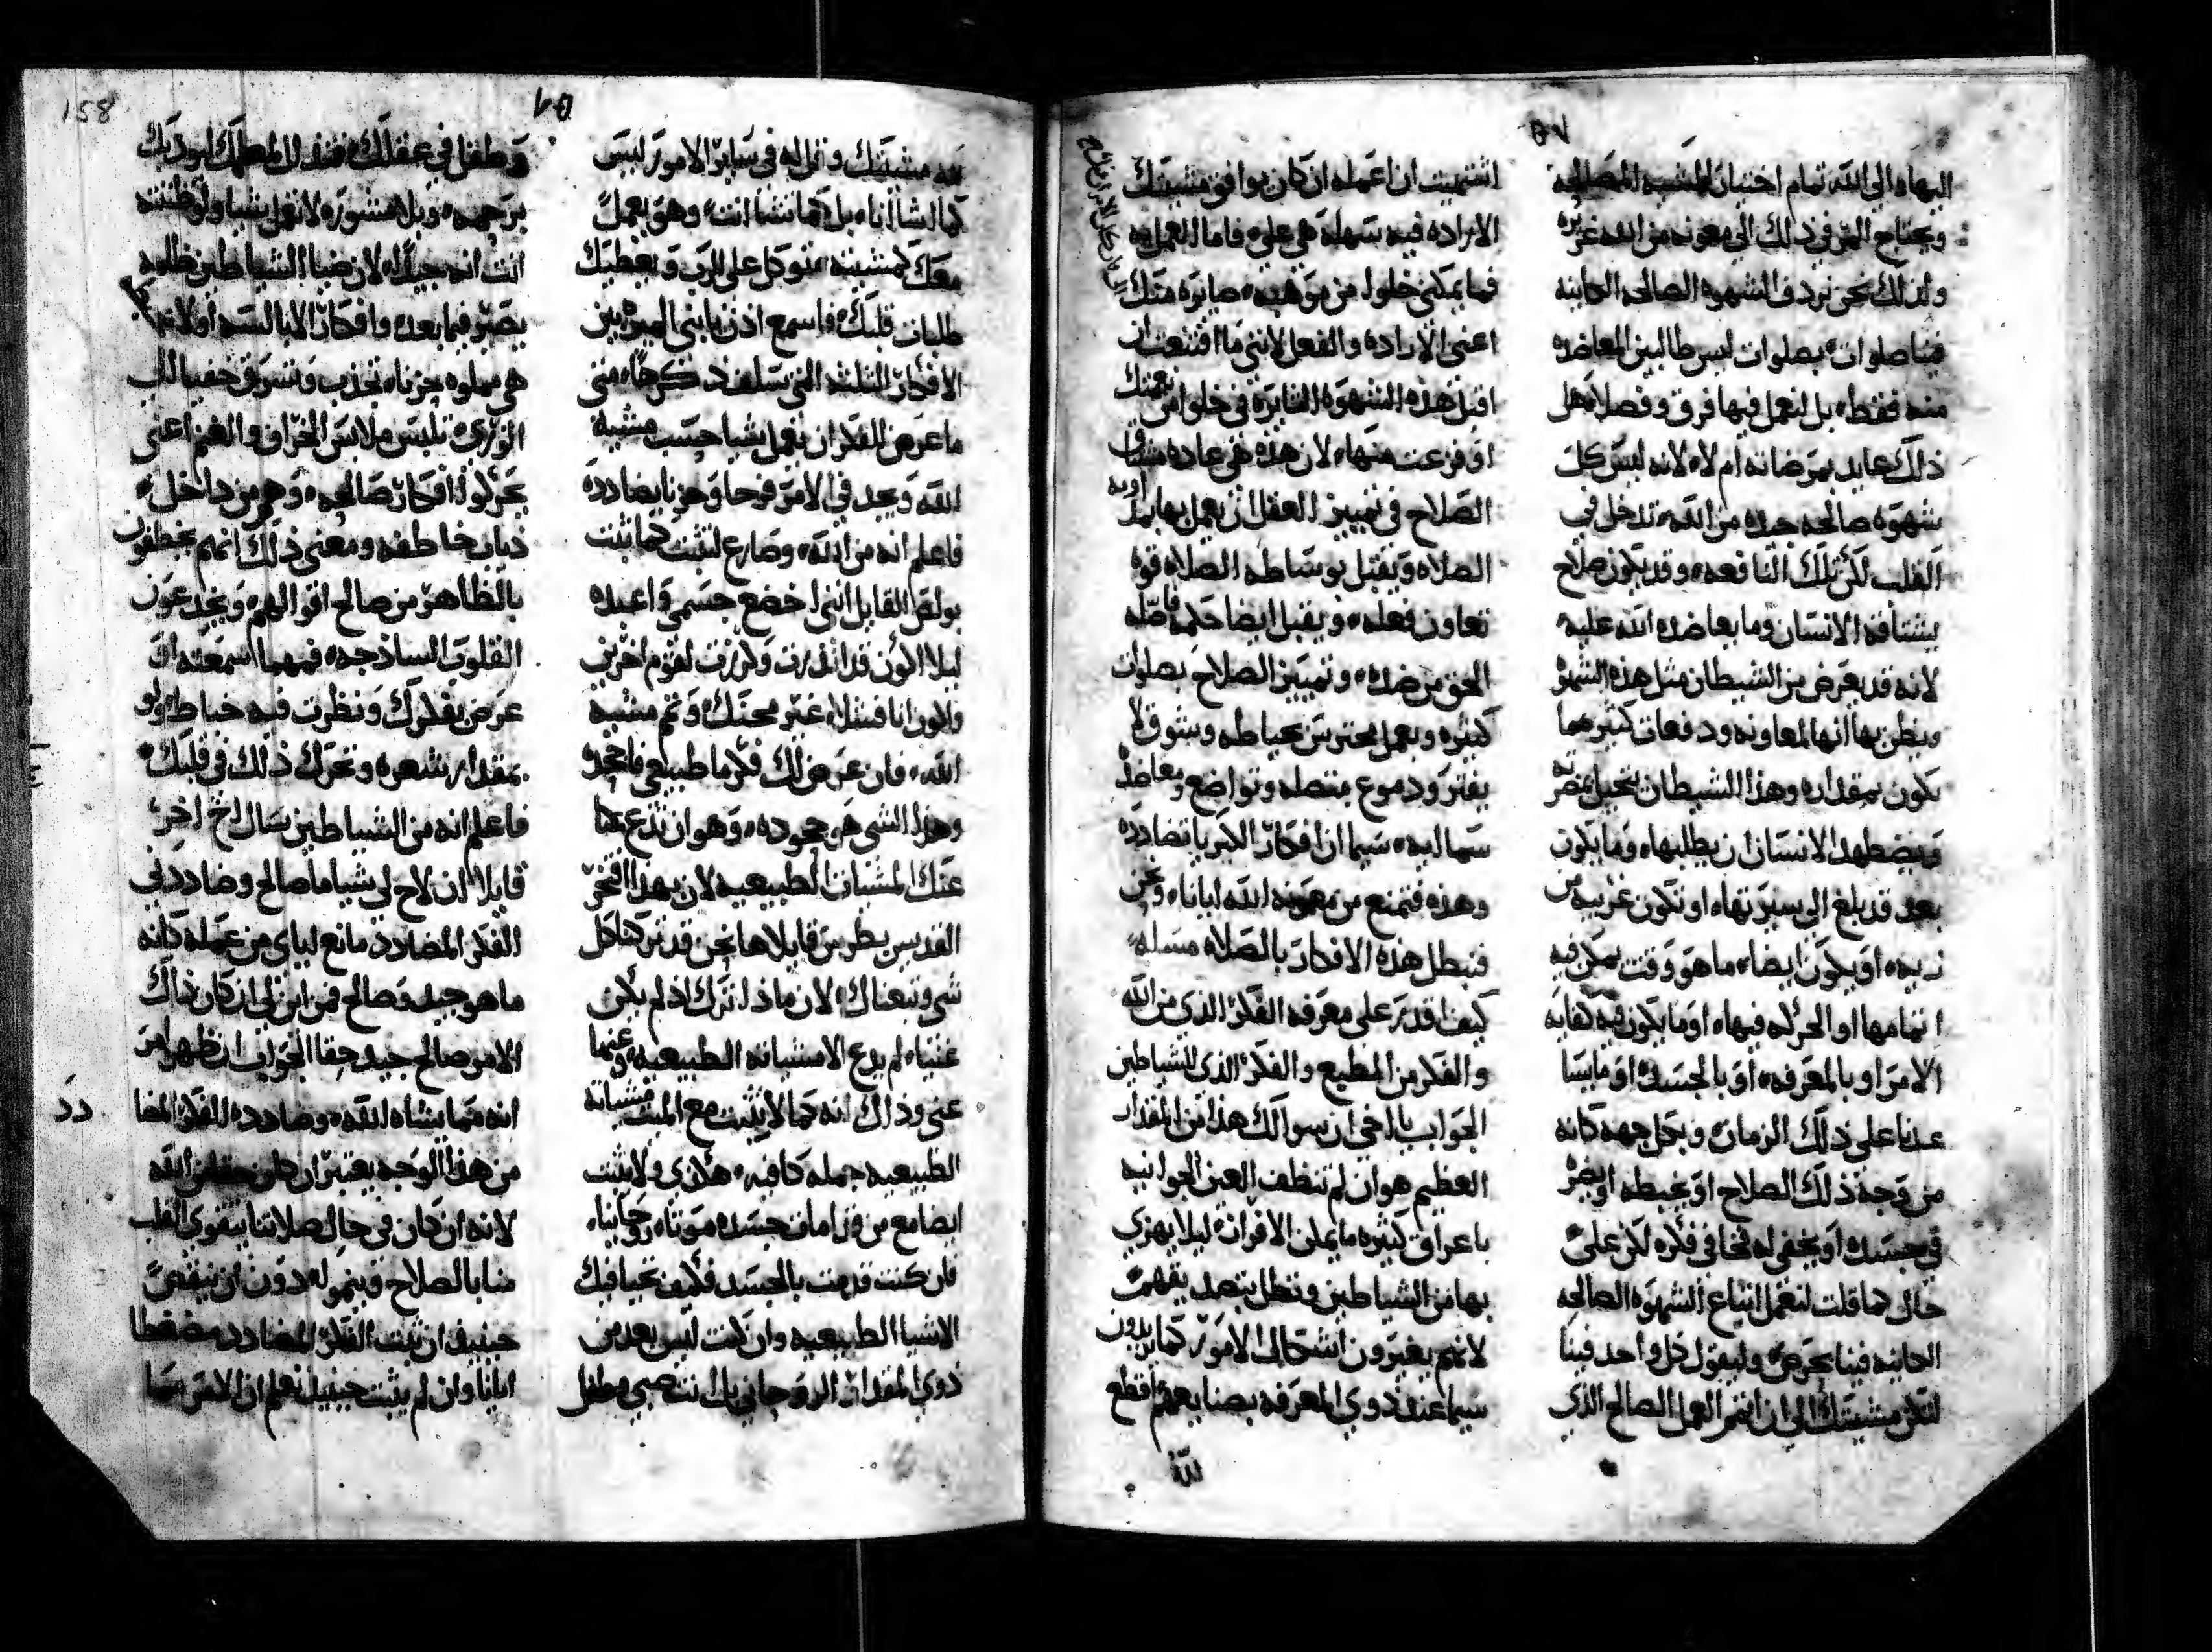 اليهاه الى الله تمام احتيان المشيه الصالحه
ويحتاج المر في ذلك الي معونه من الله غزيره
ولذلك نحن نردف الشهوه الصالحه الحاينه
فينا صلوات بصلوات ليس طالبين المعاضده
منه فقط بل لنعمل فيها فرق وفصلا هل
ذلك عايد بمرضاته ام لا لانه ليس كل
شهوه صالحه جيده من الله تدخل في
القلب لكن تلك النافعه وقد يكون صلاح
يشتاقه الانسان وما يعاضده الله عليه
لانه قد يعرض من الشيطان مثل هذه الشهوه
ويظن بها انها لمعاونه ودفعات كثيره مما
يكون بمقداره وهذا الشيطان يتحيل بمضرته
ويضطهد الانسان ان يطلبها وما يكون
بعد قد بلغ الى سيرتها او تكون غريبه من
زيه او يكون ايضا ما هو وقت يمكن فيه
اتمامها او الحركه فيها او ما يكون فيه كفايه
الامر او بالمعرفه او بالجسد او ما يسا
عدنا على ذلك الزمان وبكل جهه كانه
من وجه ذلك الصلاح او يخبطه او يضره
في جسده او يخفي له فخا في فكره لكن على
حال كما قلت لنعمل اتباع الشهوه الصالحه
الحاينه فينا بحرص وليقول كل واحد فينا
لتكن مشيتك الى ان اتمم العمل الصالح الذي
اشتهيت ان اعمله ان كان يوافق مشيتك
الاراده فيه سهله هي علي فاما العمل به
فما يمكن خلوا من موهبه صايره منك
اعني الاراده والفعل لانني ما اقتنعت ان
اقبل هذه الشهوه الثايره في خلوا من نعمتك
او فزعت منها لان هذه هي عاده مشتاق
الصلاح في تمييز العقل ان يعمل بها بمداومه
الصلاه ويقتبل بوساطه الصلاه قوه
تعاون فعله ويقبل ايضا حكما فاصله
الحق من ضده وتمييز الصلاح بصلوات
كثيره وبعمل محترس بحياطه وشوق لا
يفتر ودموع متصله وتواضع ومعاضده
سماليه سيما ان افكار الكبريا تضادده
وهذه فتمنع من معونه الله ايانا ونحن
فنبطل هذه الافكار بالصلاه مسله
كيف اقدر على معرفه الفكر الذي من الله
والفكر من الطبع والفكر الذي للشياطين
الجواب يا اخي ان سوالك هذا من المقدار
العظيم هو ان لم تنظف العين الجوانيه
باعراق كثيره ما يمكن الافران ليلا يهزي
بها من الشياطين وتظل بتصد يقهم
لانهم يغيرون اشكال الامور كما يريدون
سيما عند ذوي المعرفه بصنايعهم اقطع
لله
مشيتك وقل له في ساير الامور ليس
كما اشا انا بل كما تشا انت وهو يعمل
معك كمشيته توكل على الرب ويعطيك
طلبات قلبك فاسمع اذن يا بني الميزه بين
الافكار الثلثه التي سلف ذكرها متى
ما عرض للفكر ان تعمل شيا حسب مشيه
الله وتجد في الامر فرحا وحزنا يضادده
فاعلم انه من الله وصارع لتثبت كما ثبت
بولص القايل انني اخضع جسمي واعبده
ليلا اكون قد انذرت وكرزت لقوم اخرين
فاكون انا فشلا غير محنك وتمم مشيه
الله فان عرض لك فكر ما طبيعي فاجحده
وهذا الشي هو جحوده وهو ان تدع عنا
عنك المشيات الطبيعيه لان بهذا افتخر
القديس بطرس قايلا ها نحن قد تركنا كل
شي وتبعناك لان ماذا اترك اذ لم يكن
غنيا لم يدع الا مشياته الطبيعيه وغنها
عني وذلك انه كما لا يثبت مع الميت مشياته
الطبيعيه جمله كافيه هكذي ولا يثبت
ايضا مع من قد امات جسده موتا روحانيا
فان كنت قد مت بالجسد فكيف تحيا فيك
الاشيا الطبيعيه وان كنت ليس بعد من
ذوي المقدار الروحاني بل انت صبي وطفل
وطفل في عقلك
برجمه وبلا مشوره لا تعمل شيا ولو ظننته
انت انه جيدا لان ضيا الشياطين ظلمه
يصير فيما بعد وافكار الابالسه اولا
هي مملوه حزنا تجذب وتسرق خفيا الي
الوري تلبس ملابس الخراف والغنم اعني
يحركوا افكار صالحه وهم من داخل
ذياب خاطفه ومعنى ذلك انهم يخطفون
بالظاهر من صالح اقوالهم ويخدعون
القلوب الساذجه فمهما اسمعته او
عرض بفكرك ونظرت فيه خباطا ولو
بمقدار شعره وتحرك ذلك في قلبك
فاعلم انه من الشياطين سال اخ اخر
قايلا ان لاح لي شيا ما صالح وضاددني
الفكر المضادد مانع لياي من عمله كانه
ما هو جيد وصالح فمن اين لي ان كان ذاك
الامر صالح جيد حقا الجواب ان ظهر لامر
انه مما يشاه الله وضادده للفكر المضا
دد
من هذا الوجه يعتبر ان كان حقا من الله
لانه ان كان في حال صلاتنا يتقوي القلب
منا بالصلاح وينمو له دون ان ينقص
حينيذ ان ثبت الفكر المضادد مضغطا
ايانا وان لم يثبت حينيذ نعلم ان الامر مما
158